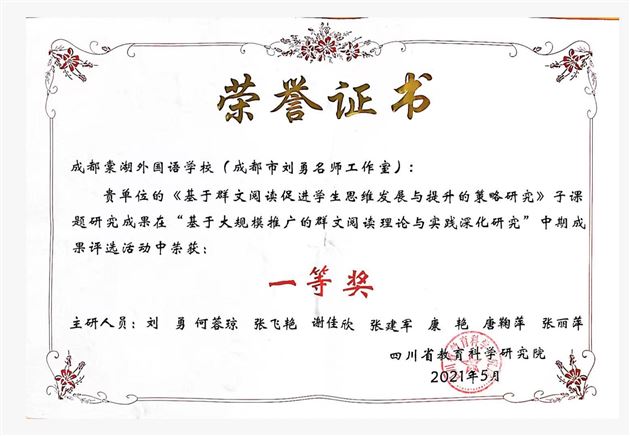 荣誉证书
成都棠湖外国语学校（成都市刘勇名师工作室）：
贵单位的《基于群文阅读促进学生思维发展与提升的策略研究》子课
题研究成果在“基于大规模推广的群文阅读理论与实践深化研究”中期成
果评选活动中荣获：
一等奖
主研人员：刘 勇 何蓉琼 张飞艳 谢佳欣 张建军 康 艳 唐鞠萍 张丽萍
四川省教育科学研究院
2021年5月